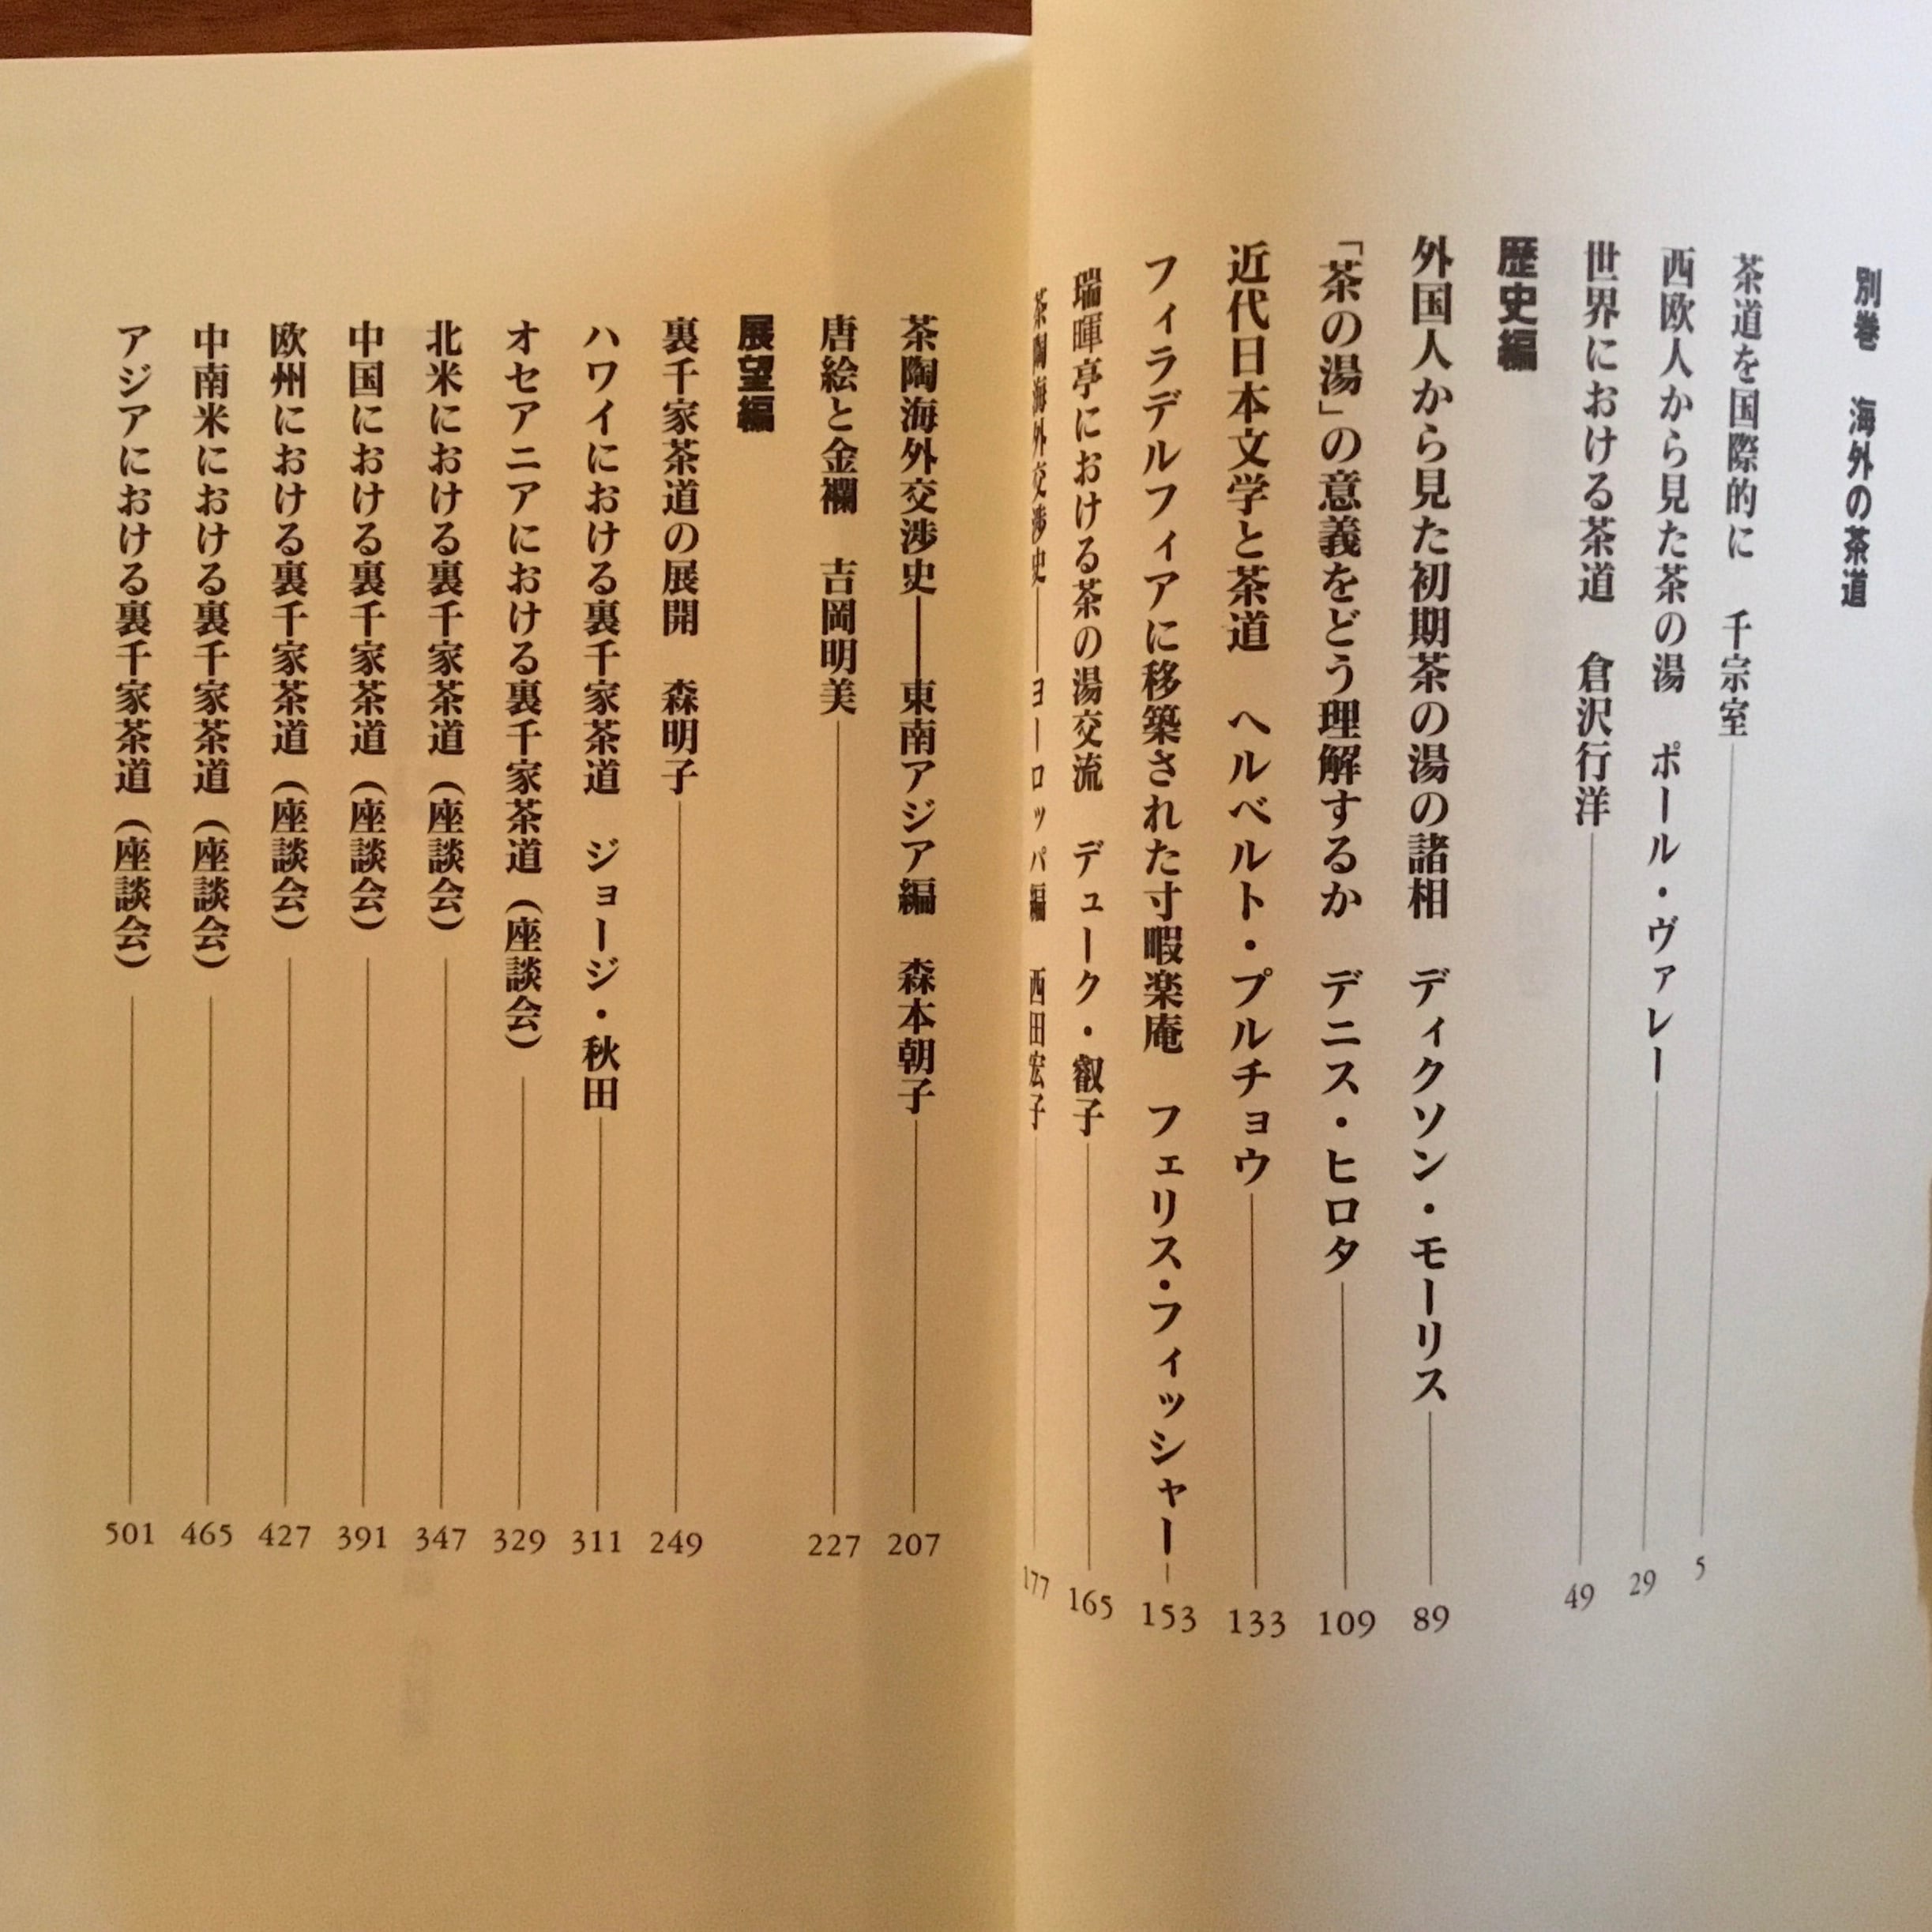 別巻　海外の茶道
茶道を国際的に　千宗室 5
西欧人から見た茶の湯　ポール・ヴァレー 29
世界における茶道　倉沢行洋 49
歴史編
外国人から見た初期茶の湯の諸相　ディクソン・モーリス 89
「茶の湯」の意義をどう理解するか　デニス・ヒロタ 109
近代日本文学と茶道　ヘルベルト・プルチョウ 133
フィラデルフィアに移築された寸暇楽庵　フェリス・フィッシャー 153
瑞暉亭における茶の湯交流　デューク・叡子 165
茶陶海外交渉史――ヨーロッパ編　西田宏子 177
茶陶海外交渉史――東南アジア編　森本朝子 207
唐絵と金襴　吉岡明美 227
展望編
裏千家茶道の展開　森明子 249
ハワイにおける裏千家茶道　ジョージ・秋田 311
オセアニアにおける裏千家茶道（座談会） 329
北米における裏千家茶道（座談会） 347
中国における裏千家茶道（座談会） 391
欧州における裏千家茶道（座談会） 427
中南米における裏千家茶道（座談会） 465
アジアにおける裏千家茶道（座談会） 501